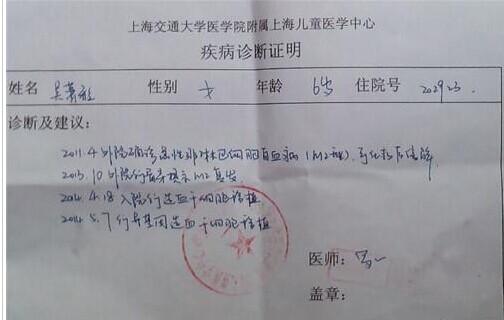 上海交通大学医学院附属上海儿童医学中心
疾病诊断证明
姓名 吴 性别 女 年龄 6岁 住院号 202923.
诊断及建议：
2011.4 外院确诊急性非淋巴细胞白血病（M2型），予化疗后缓解
2013.10 外院行骨穿提示M2复发
2014.4.18 入院行造血干细胞移植
2014.5.7 行异基因造血干细胞移植
医师：
盖章：